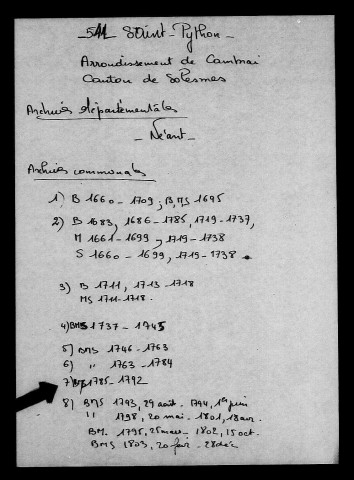 541 Saint-Python
Arrondissement de Cambrai
Canton de Solesmes
Archives départementales
- Néant -
Archives communales
1) B 1660 - 1709 ; B, MS 1695
2) B 1683, 1686 - 1785, 1719 - 1737,
M 1661 - 1699, 1719 - 1738
S 1660 - 1699, 1719 - 1738
3) B 1711, 1713 - 1718
MS 1711 - 1718.
4) BMS 1737 - 1745
5) BMS 1746 - 1763
6) " 1763 - 1784
7) 1785 - 1792
8) BMS 1793, 29 août - 1794, 1er juin
" 1798, 20 mai - 1801,
BM. 1795, 25 mars - 1802, 15 oct.
BMS 1803, 20 - 28 déc